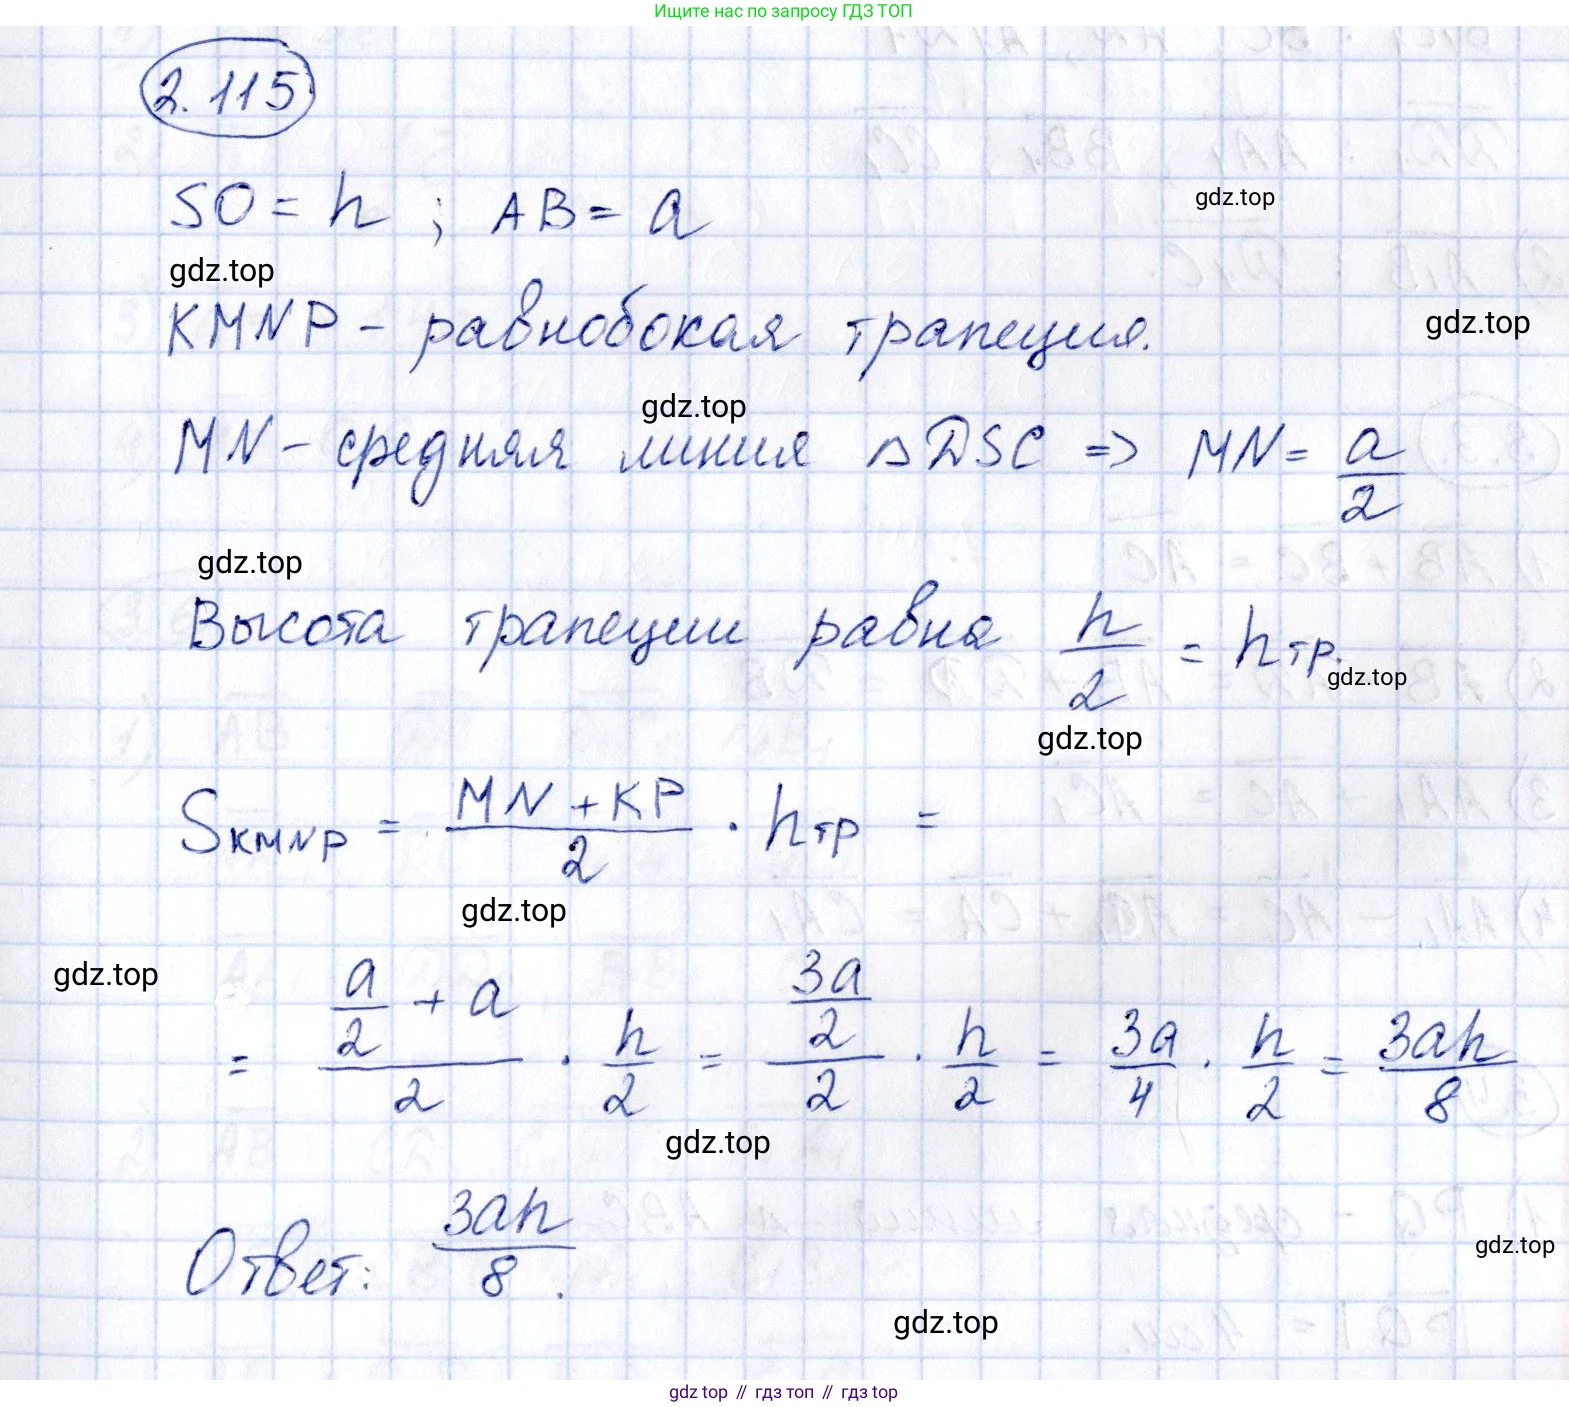 Ищите нас по запросу ГДЗ ТОП
2.115
SO = h ; AB = a
gdz.top
gdz.top
KMNP - равнобокая трапеция.
gdz.top
gdz.top
MN - средняя линия △DSC => MN = a/2
gdz.top
Высота трапеции равна h/2 = hтр.
gdz.top
gdz.top
SKMNP = (MN + KP)/2 · hтр =
gdz.top
gdz.top
= (a/2 + a)/2 · h/2 = (3a/2)/2 · h/2 = 3a/4 · h/2 = 3ah/8
gdz.top
Ответ: 3ah/8.
gdz.top
gdz.top
gdz top // гдз топ // гдз top